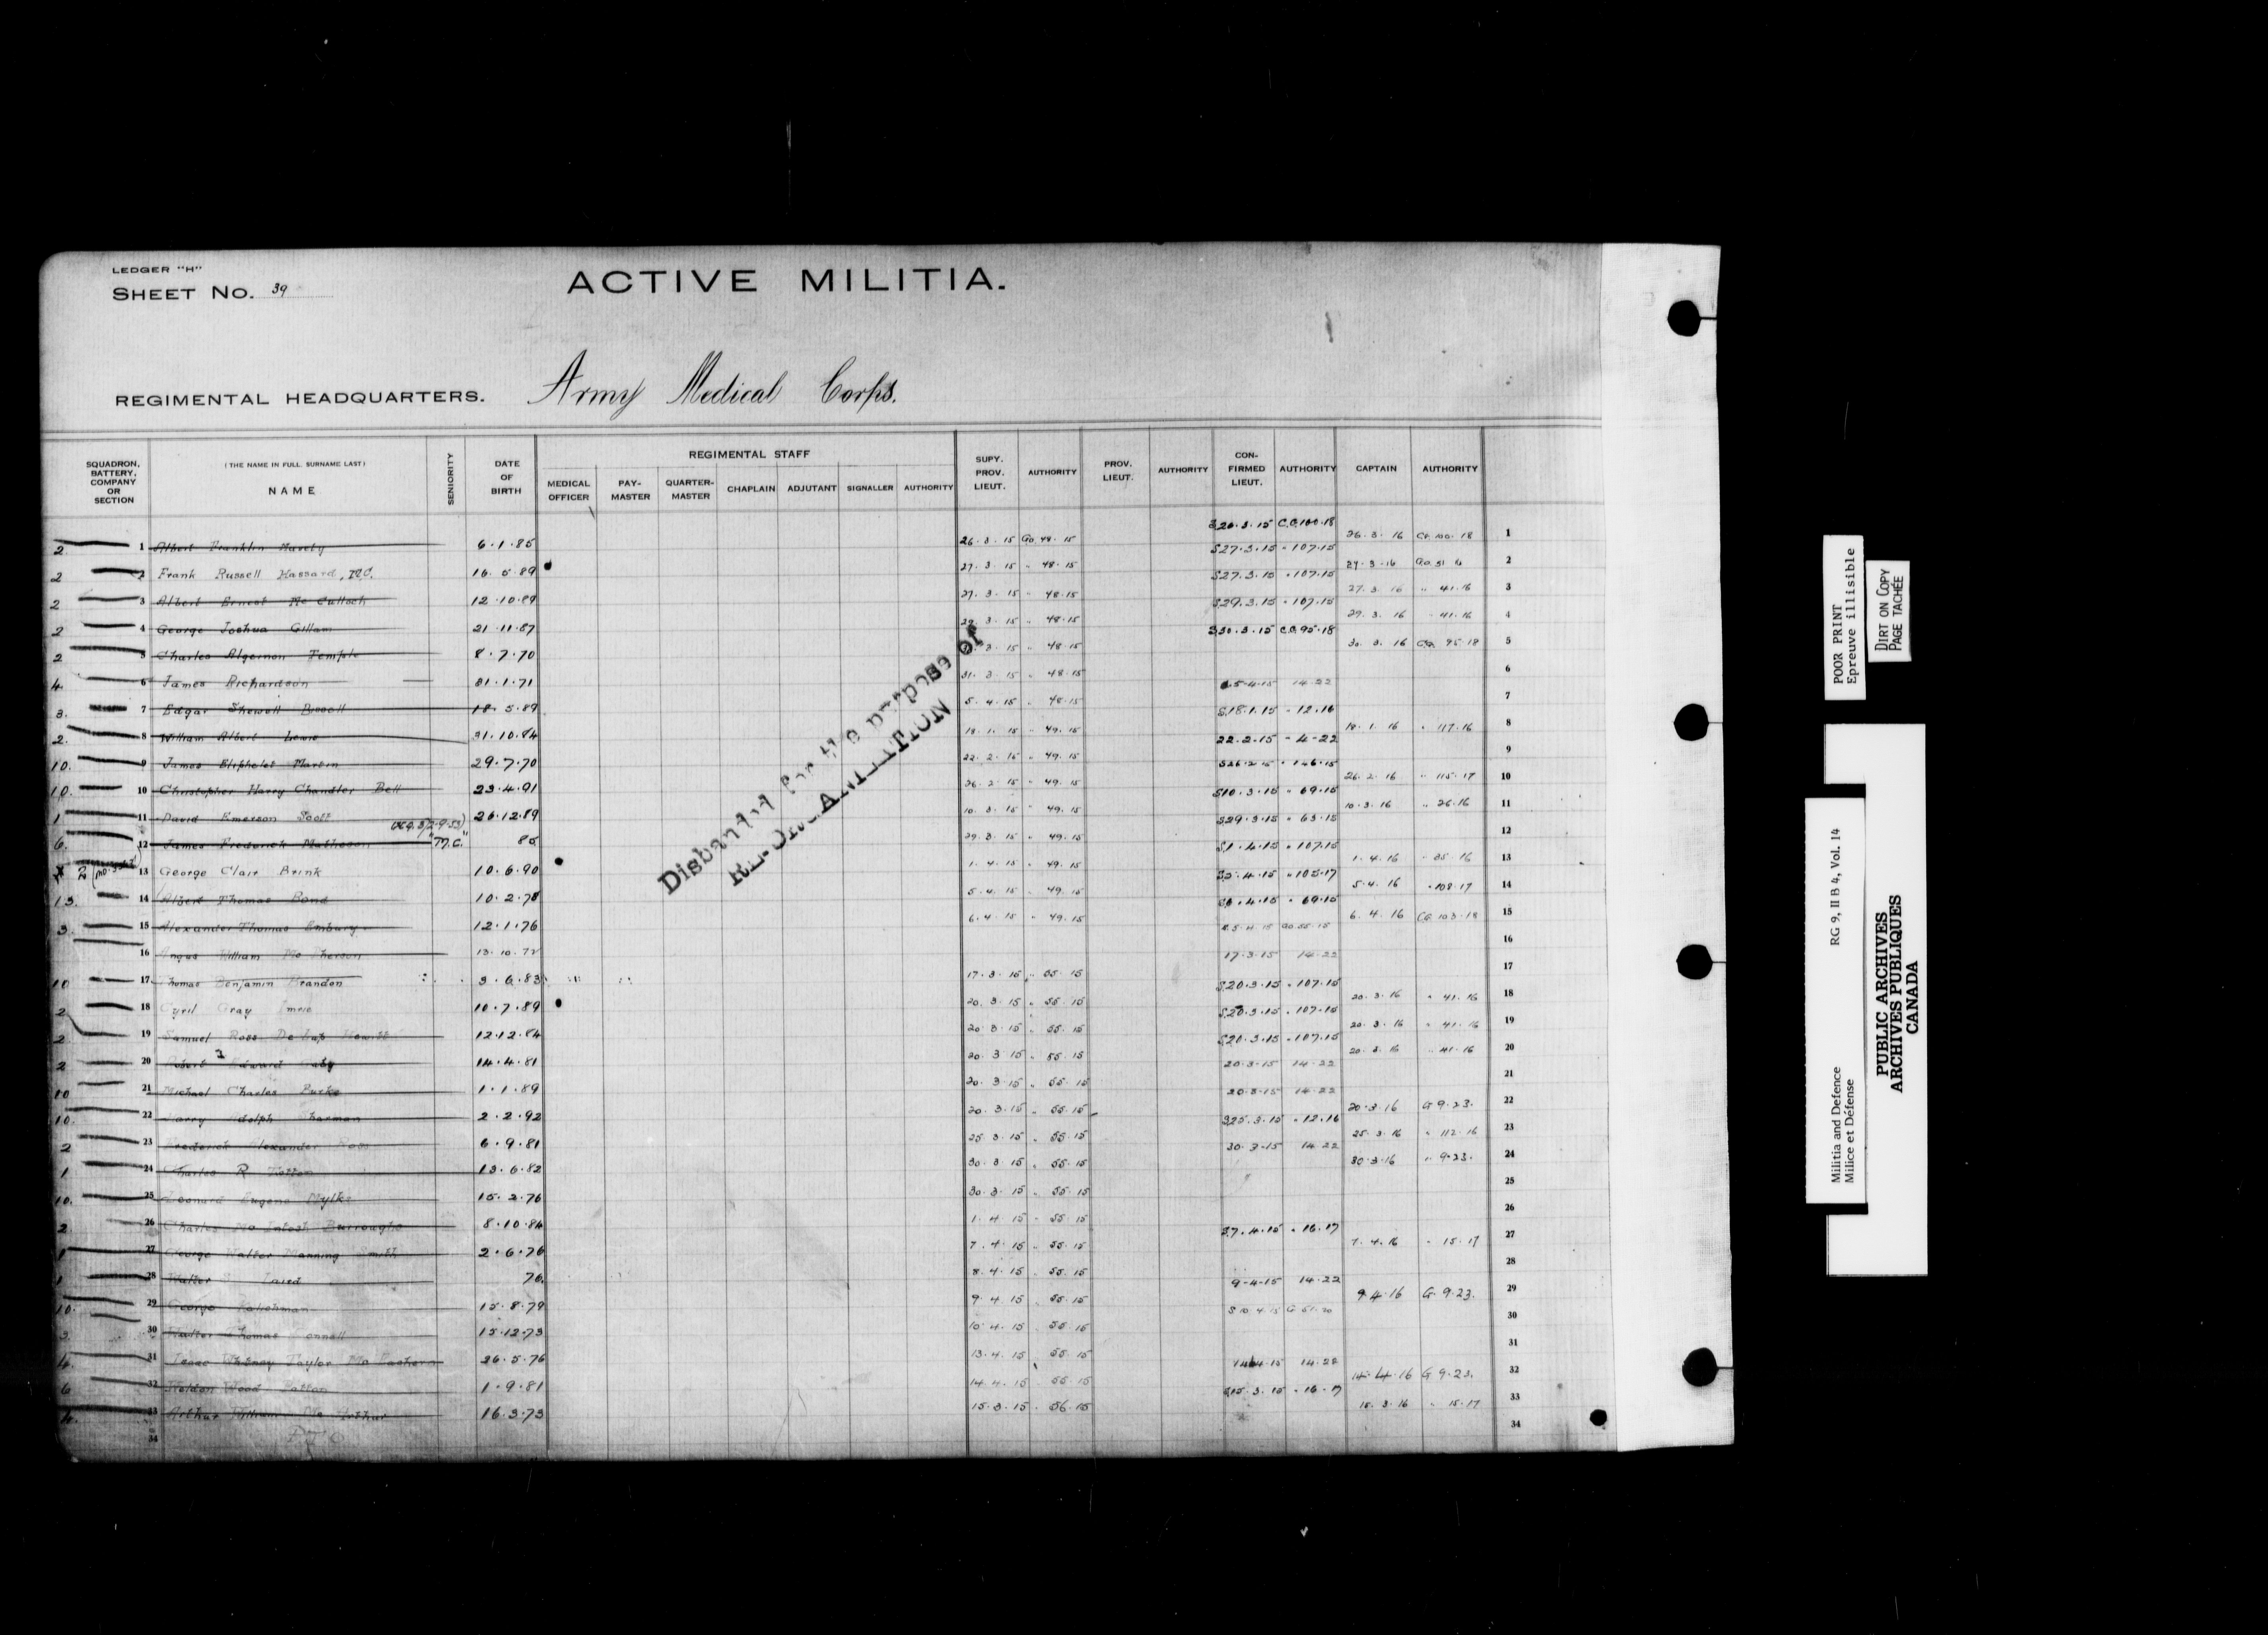 LEDGER "H"
SHEET NO. 39
ACTIVE MILITIA.
REGIMENTAL HEADQUARTERS. Army Medical Corps.
SQUADRON, BATTERY, COMPANY OR SECTION
(THE NAME IN FULL. SURNAME LAST)
NAME
SENIORITY
DATE OF BIRTH
REGIMENTAL STAFF
MEDICAL OFFICER
PAY-MASTER
QUARTER-MASTER
CHAPLAIN
ADJUTANT
SIGNALLER
AUTHORITY
SUPY. PROV. LIEUT.
AUTHORITY
PROV. LIEUT.
AUTHORITY
CON-FIRMED LIEUT.
AUTHORITY
CAPTAIN
AUTHORITY
2 1 Albert Franklin 6.1.85 26.3.15 GO 48.15 26.3.15 C.O. 100.18 26.3.16 100.18 1
2 2 Frank Russell Hassard, 16.5.89 27.3.15 " 48.15 S27.3.15 " 107.15 27.3.16 2
2 3 Albert Ernest Mc Cullock 12.10.89 27.3.15 " 48.15 S27.3.15 " 107.15 27.3.16 " 41.16 3
2 4 George Joshua Gillam 21.11.87 29.3.15 " 48.15 S29.3.15 " 107.15 29.3.16 41.16 4
2 5 Charles Algernon Temple 8.7.70 3.15 " 48.15 30.3.15 C.O. 95.18 30.3.16 95.18 5
4. 6 James Richardson 31.1.71 31.3.15 " 48.15 6
3. 7 Edgar Shewell Bissell 18.5.89 5.4.15 " 48.15 5-4-15 14-22 7
2. 8 William Albert Lewis 31.10.84 18.1.15 " 49.15 S18.1.15 " 12.16 18.1.16 " 117.16 8
10. 9 James Eliphalet Martin 29.7.70 22.2.15 " 49.15 22.2.15 - 4-22 9
10. 10 Christopher Harry Chandler Bell 23.4.91 26.2.15 " 49.15 S26.2.15 " 146.15 26.2.16 " 115.17 10
1 11 David Emerson Scott 26.12.89 10.3.15 " 49.15 S10.3.15 " 69.15 10.3.16 " 26.16 11
6. 12 James Frederick Matheson "M.C." 85 29.3.15 " 49.15 S29.3.15 " 63.15 12
2 13 George Clair Brink 10.6.90 1.4.15 " 49.15 S1.4.15 " 107.15 1.4.16 " 35.16 13
13. 14 Albert Thomas Bond 10.2.78 5.4.15 " 49.15 S5.4.15 " 105.17 5.4.16 " 108.17 14
3. 15 Alexander Thomas Embury 12.1.76 6.4.15 " 49.15 S6.4.15 " 69.15 6.4.16 103.18 15
16 Angus William Mc Pherson 13.10.72 16
10 17 Thomas Benjamin Brandon 3.6.83 17.3.15 " 55.15 17-3-15 14-22 17
2 18 Cyril Gray Imrie 10.7.89 20.3.15 " 55.15 S20.3.15 " 107.15 20.3.16 " 41.16 18
2 19 Samuel Ross De Lap Hewitt 12.12.84 20.3.15 " 55.15 S20.3.15 " 107.15 20.3.16 " 41.16 19
2 20 Robert Edward 14.4.81 20.3.15 " 55.15 S20.3.15 " 107.15 20.3.16 " 41.16 20
10 21 Michael Charles Burke 1.1.89 20.3.15 " 55.15 20-3-15 14-22 21
10. 22 Harry Adolph 2.2.92 20.3.15 " 55.15 20-3-15 14-22 20.3.16 G 9.23. 22
2 23 Frederick Alexander Ross 6.9.81 25.3.15 " 55.15 S25.3.15 " 12.16 25.3.16 " 112.16 23
1 24 Charles R 13.6.82 30.3.15 " 55.15 30-3-15 14-22 30.3.16 " 9.23. 24
10. 25 Leonard Eugene 15.2.76 30.3.15 " 55.15 25
2. 26 Charles Mc Intosh Burroughs 8.10.84 1.4.15 " 55.15 26
1 27 George Walter Manning Smith 2.6.76 7.4.15 " 55.15 S7.4.15 " 16.17 7.4.16 " 15.17 27
1 28 Walter Laird 76. 8.4.15 " 55.15 28
10. 29 George 15.8.79 9.4.15 " 55.15 9-4-15 14-22 9.4.16 G. 9.23. 29
3. 30 Walter Thomas Connell 15.12.73 10.4.15 55.15 30
4. 31 Isaac Taylor 26.5.76 13.4.15 55.15 31
6 32 Weldon Wood Patton 1.9.81 14.4.15 55.15 14-4-15 14-22 14.4.16 G 9.23. 32
4. 33 Arthur William 16.3.73 15.3.15 " 56.15 S15.3.15 " 16.17 15.3.16 " 15.17 33
34 34
Disbanded for the purpose of
RE-ORGANIZATION
POOR PRINT
Epreuve illisible
DIRT ON COPY
PAGE TACHÉE
Militia and Defence
Milice et Défense
RG 9, II B 4, Vol. 14
PUBLIC ARCHIVES
ARCHIVES PUBLIQUES
CANADA